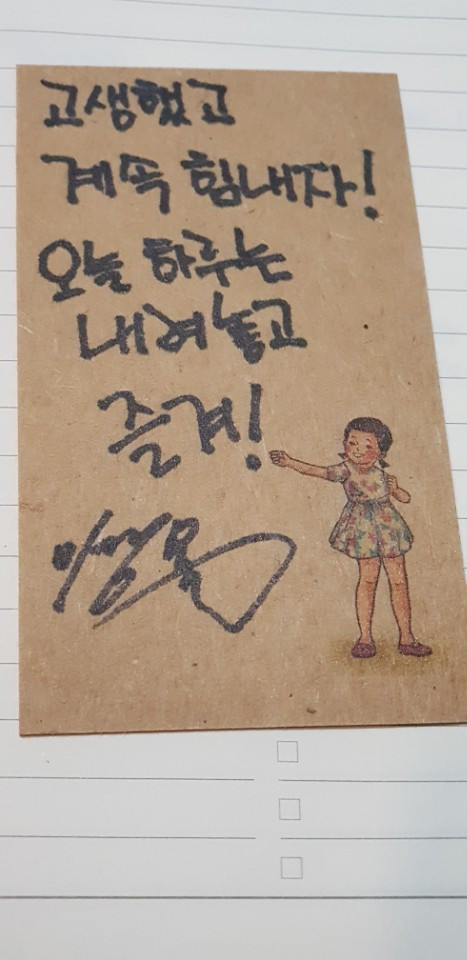 고생했고
계속 힘내자!
오늘 하루는
내려놓고
즐겨!